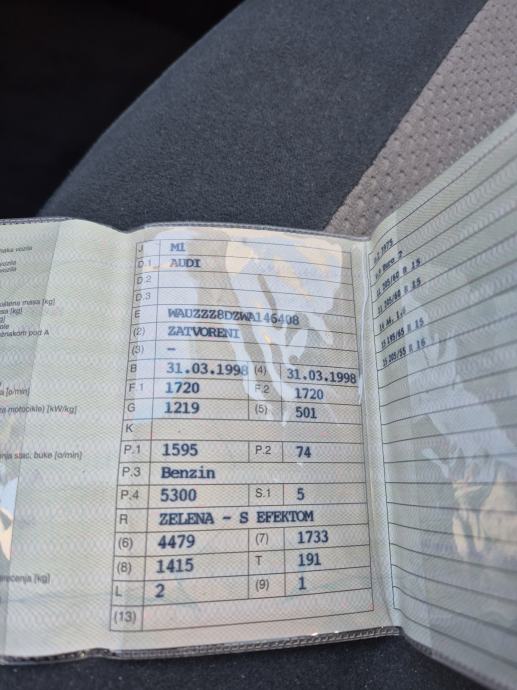 vozila
vozila
masa [kg]
[kg]
pod A
[o/min]
motocikle) [kW/kg]
stac. buke [o/min]
[kg]
J M1
D.1 AUDI
D.2
D.3
E WAUZZZ8DZWA146408
(2) ZATVORENI
(3) -
B 31.03.1998 (4) 31.03.1998
F.1 1720 F.2 1720
G 1219 (5) 501
K
P.1 1595 P.2 74
P.3 Benzin
P.4 5300 S.1 5
R ZELENA - S EFEKTOM
(6) 4479 (7) 1733
(8) 1415 T 191
L 2 (9) 1
(13)
Euro 2
205/60 R 15
205/60 R 15
195/65 R 15
205/55 R 16